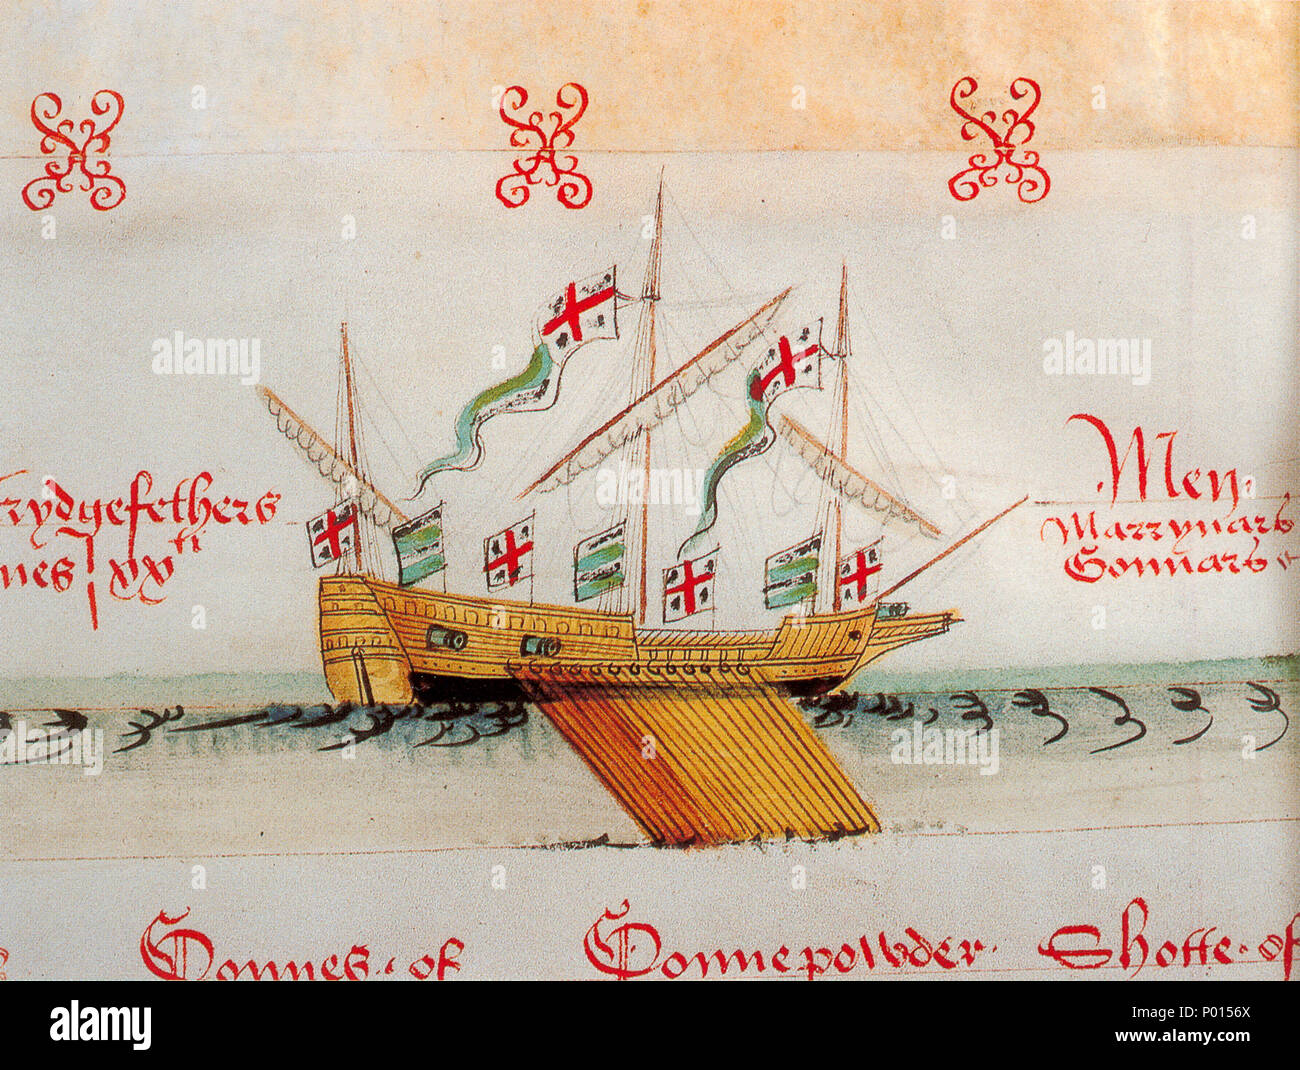 rydgefethers
nes xx
Men
Marrynars
Gonnars
Gonnes · of Gonnepowder · Shotte · of
alamy
alamy
alamy
alamy
alamy
alamy
alamy
Image ID: P0156X
www.alamy.com